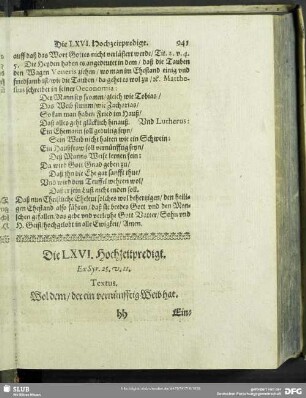 Die LXVI. Hochzeitpredigt. 941
auff daß das Wort Gottes nicht verlästert werde/ Tit. 2. v. 4.
5. Die Heyden haben es angedeutet in dem / daß die Tauben
den Wagen Veneris ziehen / wo man im Ehestand einig und
freundlich ist wie die Tauben / da gehet es wol zu / ꝛc. Mathe-
sius schreibet in seiner Oeconomia:
Der Mann sey fromm / gleich wie Tobias /
Das Weib stumm wie Zacharias /
So kan man haben Fried im Hauß /
Daß alles geht glücklich hinauß. Und Lutherus:
Ein Ehemann soll gedultig seyn /
Sein Weib nicht halten wie ein Schwein:
Ein Haußfrau soll vernünfftig seyn /
Deß Manns Weise lernen fein:
Da wird Gott Gnad geben zu /
Daß ihn die Ehe gar sanffte thut /
Und wird dem Teuffel wehren wol /
Daß er sein Lust nicht enden soll.
Daß nun Christliche Eheleut solches wol behertzigen / den heili-
gen Ehestand also führen / daß sie beydes Gott und den Men-
schen gefallen / das gebe und verleyhe Gott Vatter / Sohn und
H. Geist hochgelobt in alle Ewigkeit / Amen.
Die LXVI. Hochzeitpredigt.
Ex Syr. 25, v. 11.
Textus.
Wol dem / der ein vernünfftig Weib hat.
hh Ein-
SLUB
DFG